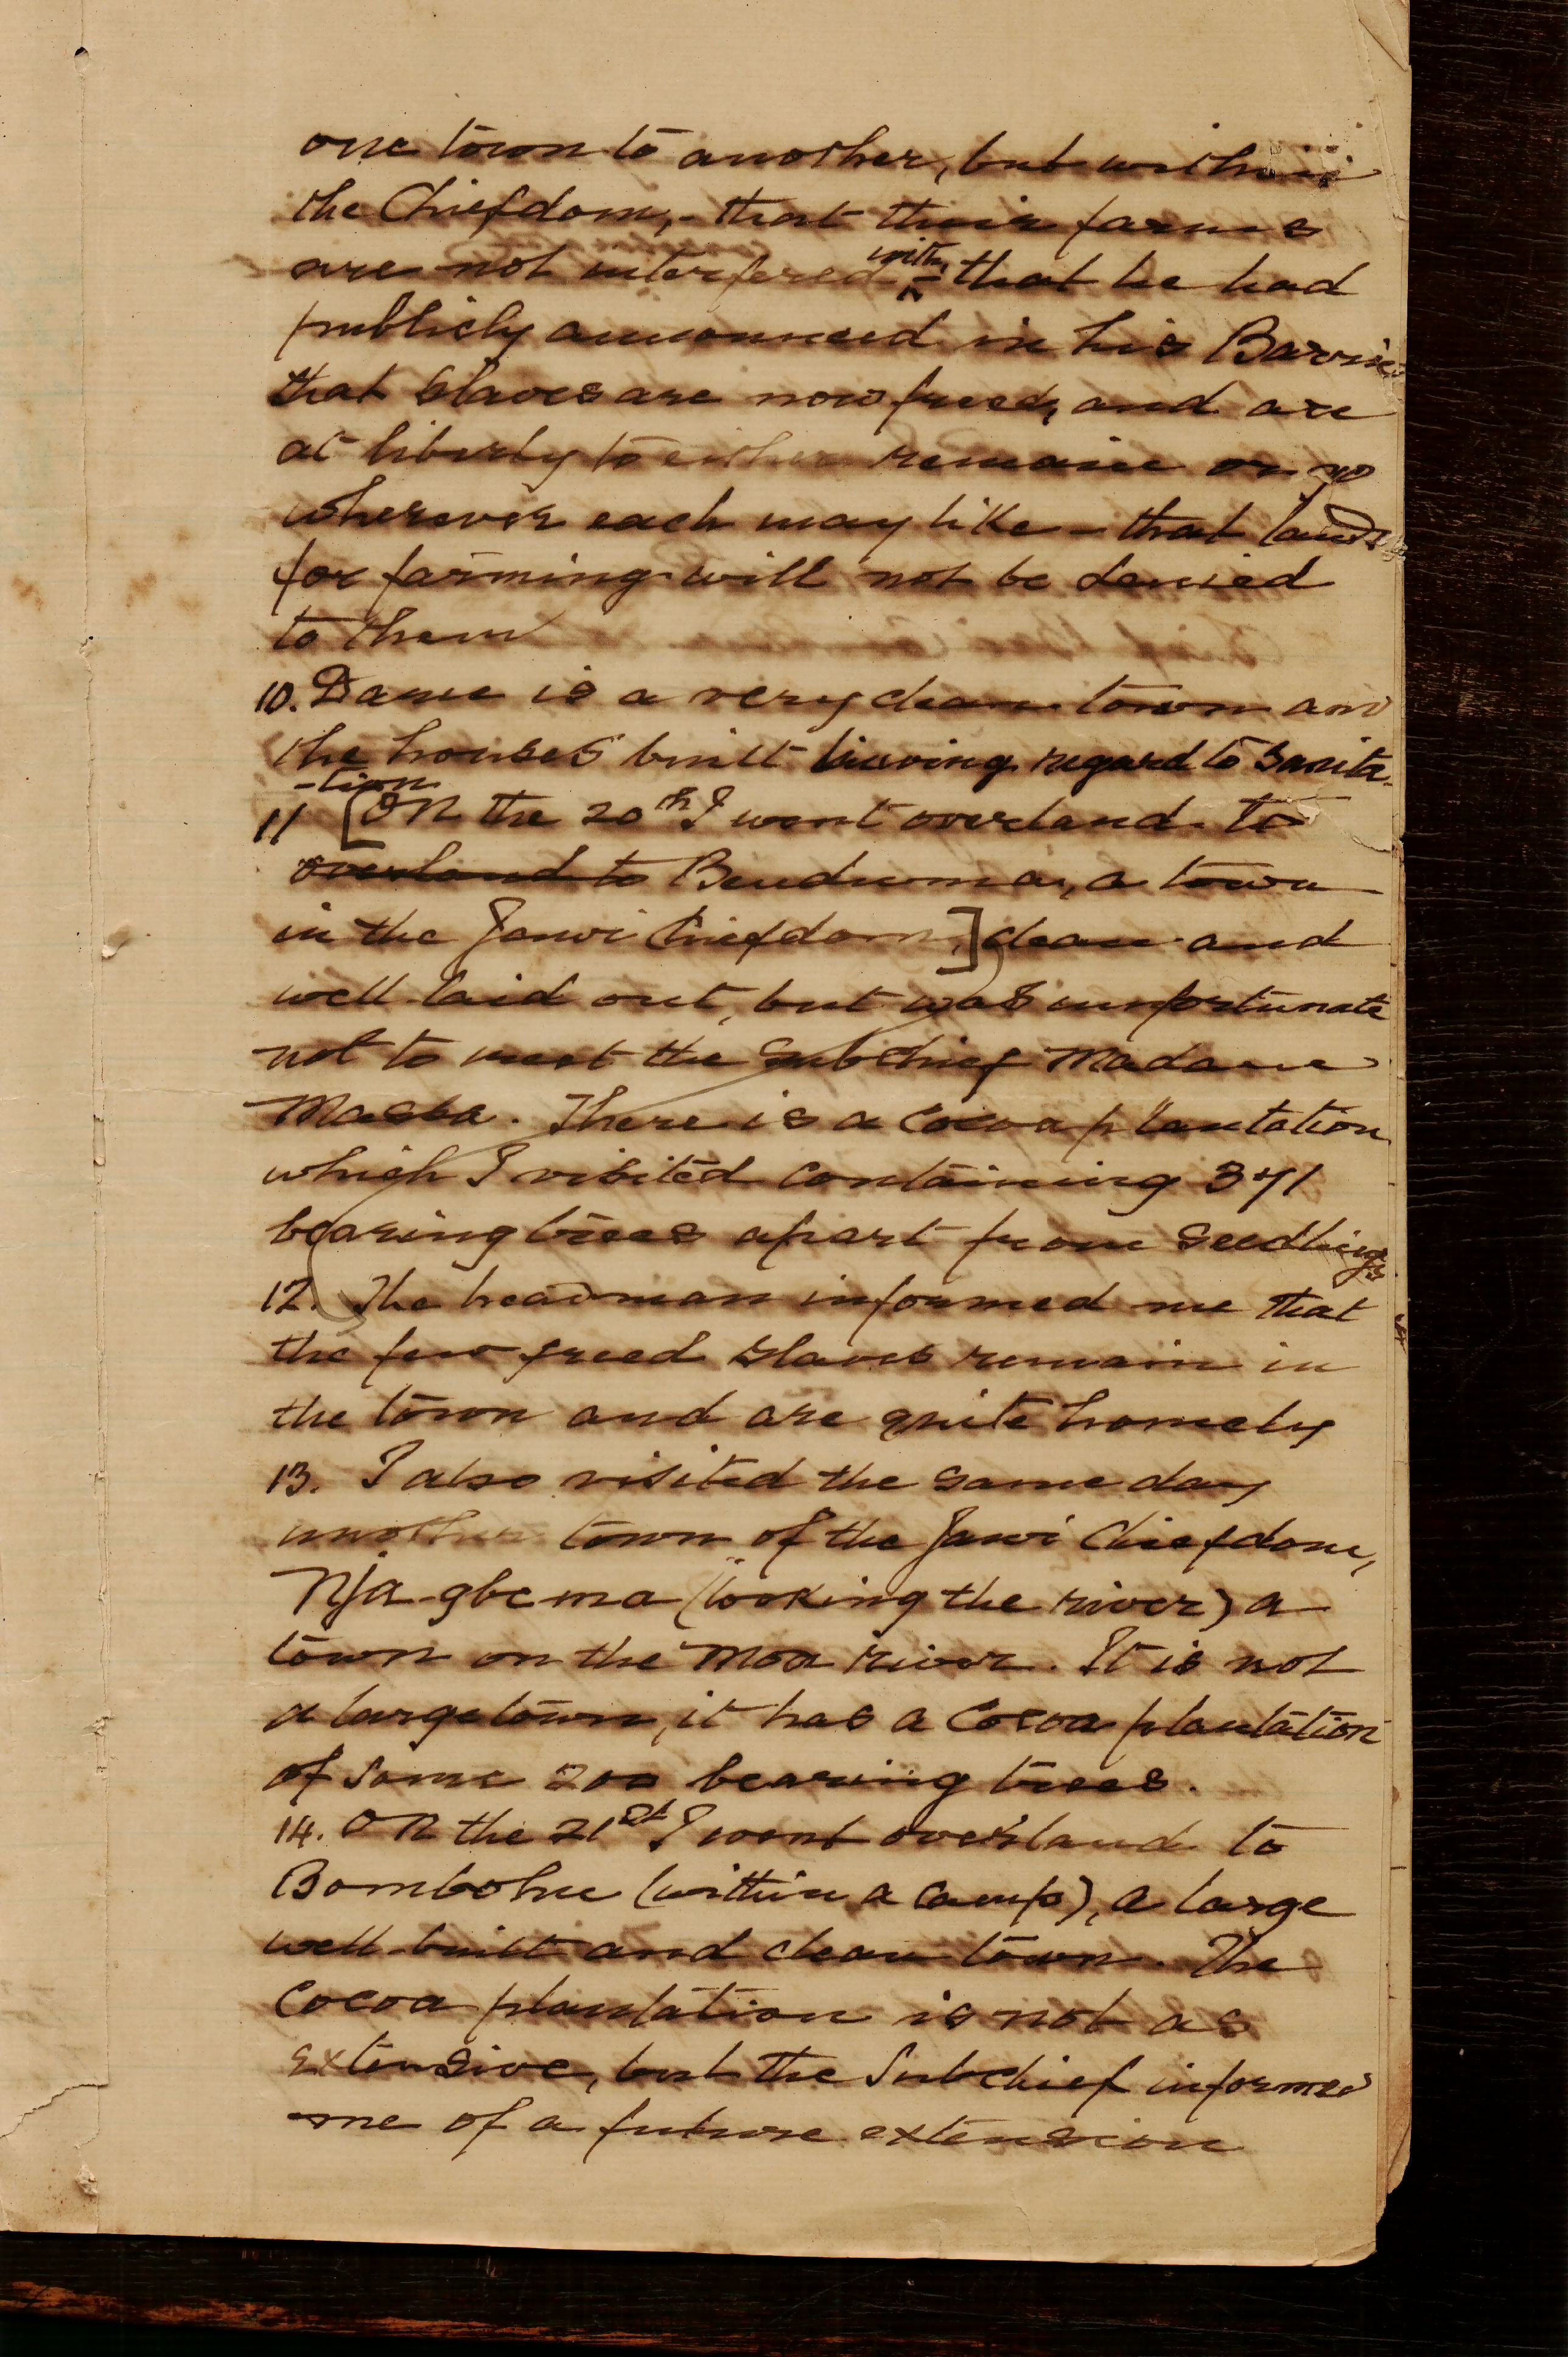 one town to another, but within
the Chiefdom, - that their farms
are not interfered with, - that he had
publicly announced in his Barrie
that slaves are now freed, and are
at liberty to either remain or go
wherever each may like - that lands
for farming will not be denied
to them
10. Dame is a very clean town and
the houses built having regard to Sanita-
-tion
11 [On the 20th I went overland to
overland to Bendumai, a town
in the Jawi Chiefdom,] clean and
well laid out, but was unfortunate
not to meet the Subchief Madame
There is a Cocoa plantation
which I visited containing 371
bearing trees apart from seedlings
12. The headman informed me that
the few freed slaves remain in
the town and are quite homely
13. I also visited the same day
another town of the Jawi Chiefdom,
Nja-gbema (looking the river) a
town on the Moa river. It is not
a large town, it has a Cocoa plantation
of some 200 bearing trees.
14. On the 21st I went overland to
Bombohu (within a camp), a large
well-built and clean town. The
Cocoa plantation is not as
extensive, but the Subchief informed
me of a future extension